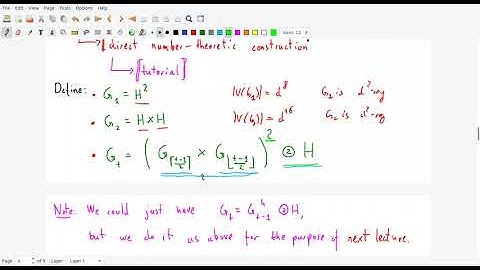 File Edit View Journal Tools Options Help
Sans 12
[direct number-theoretic construction
[tutorial]
Define: • G₁ = H² |V(G₁)| = d⁸ G₁ is d²-reg
• G₂ = H × H |V(G₂)| = d¹⁶ G₂ is d²-reg
• Gₜ = (G⌈(t-1)/2⌉ × G⌊(t-1)/2⌋)² ⓩ H
Note: We could just have Gₜ = G⁴ₜ₋₁ ⓩ H,
but we do it as above for the purpose of next lecture.
Page 4 of 9 Layer Layer 1